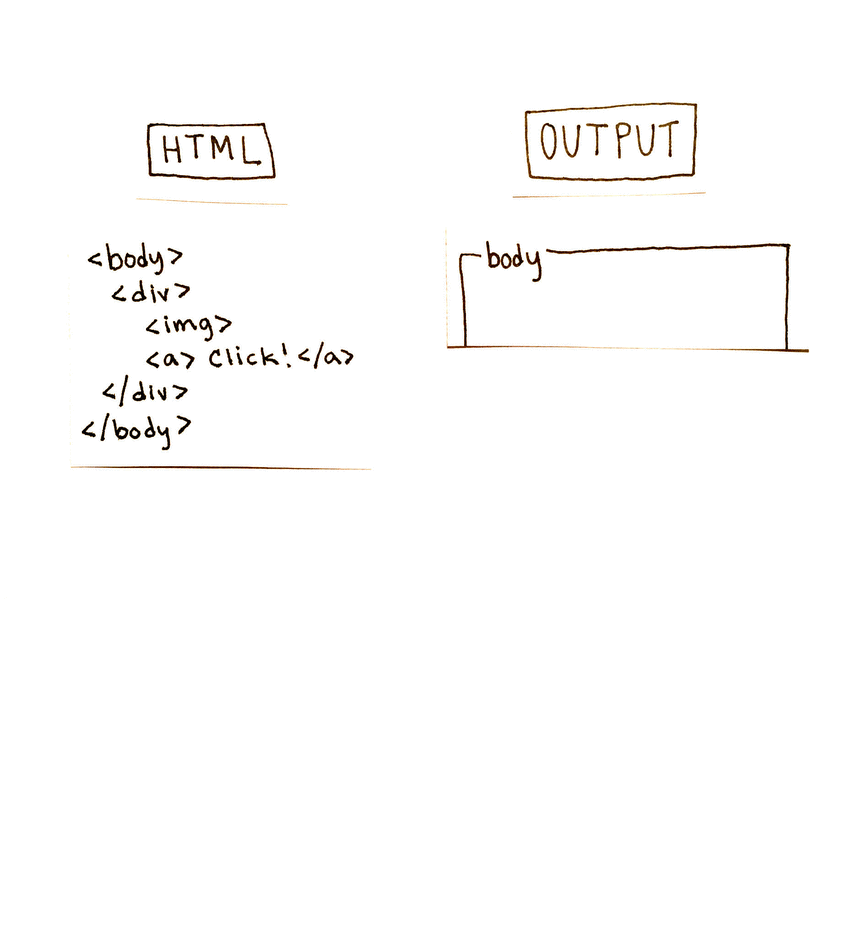 HTML
<body>
<div>
<img>
<a> Click! </a>
</div>
</body>
OUTPUT
body